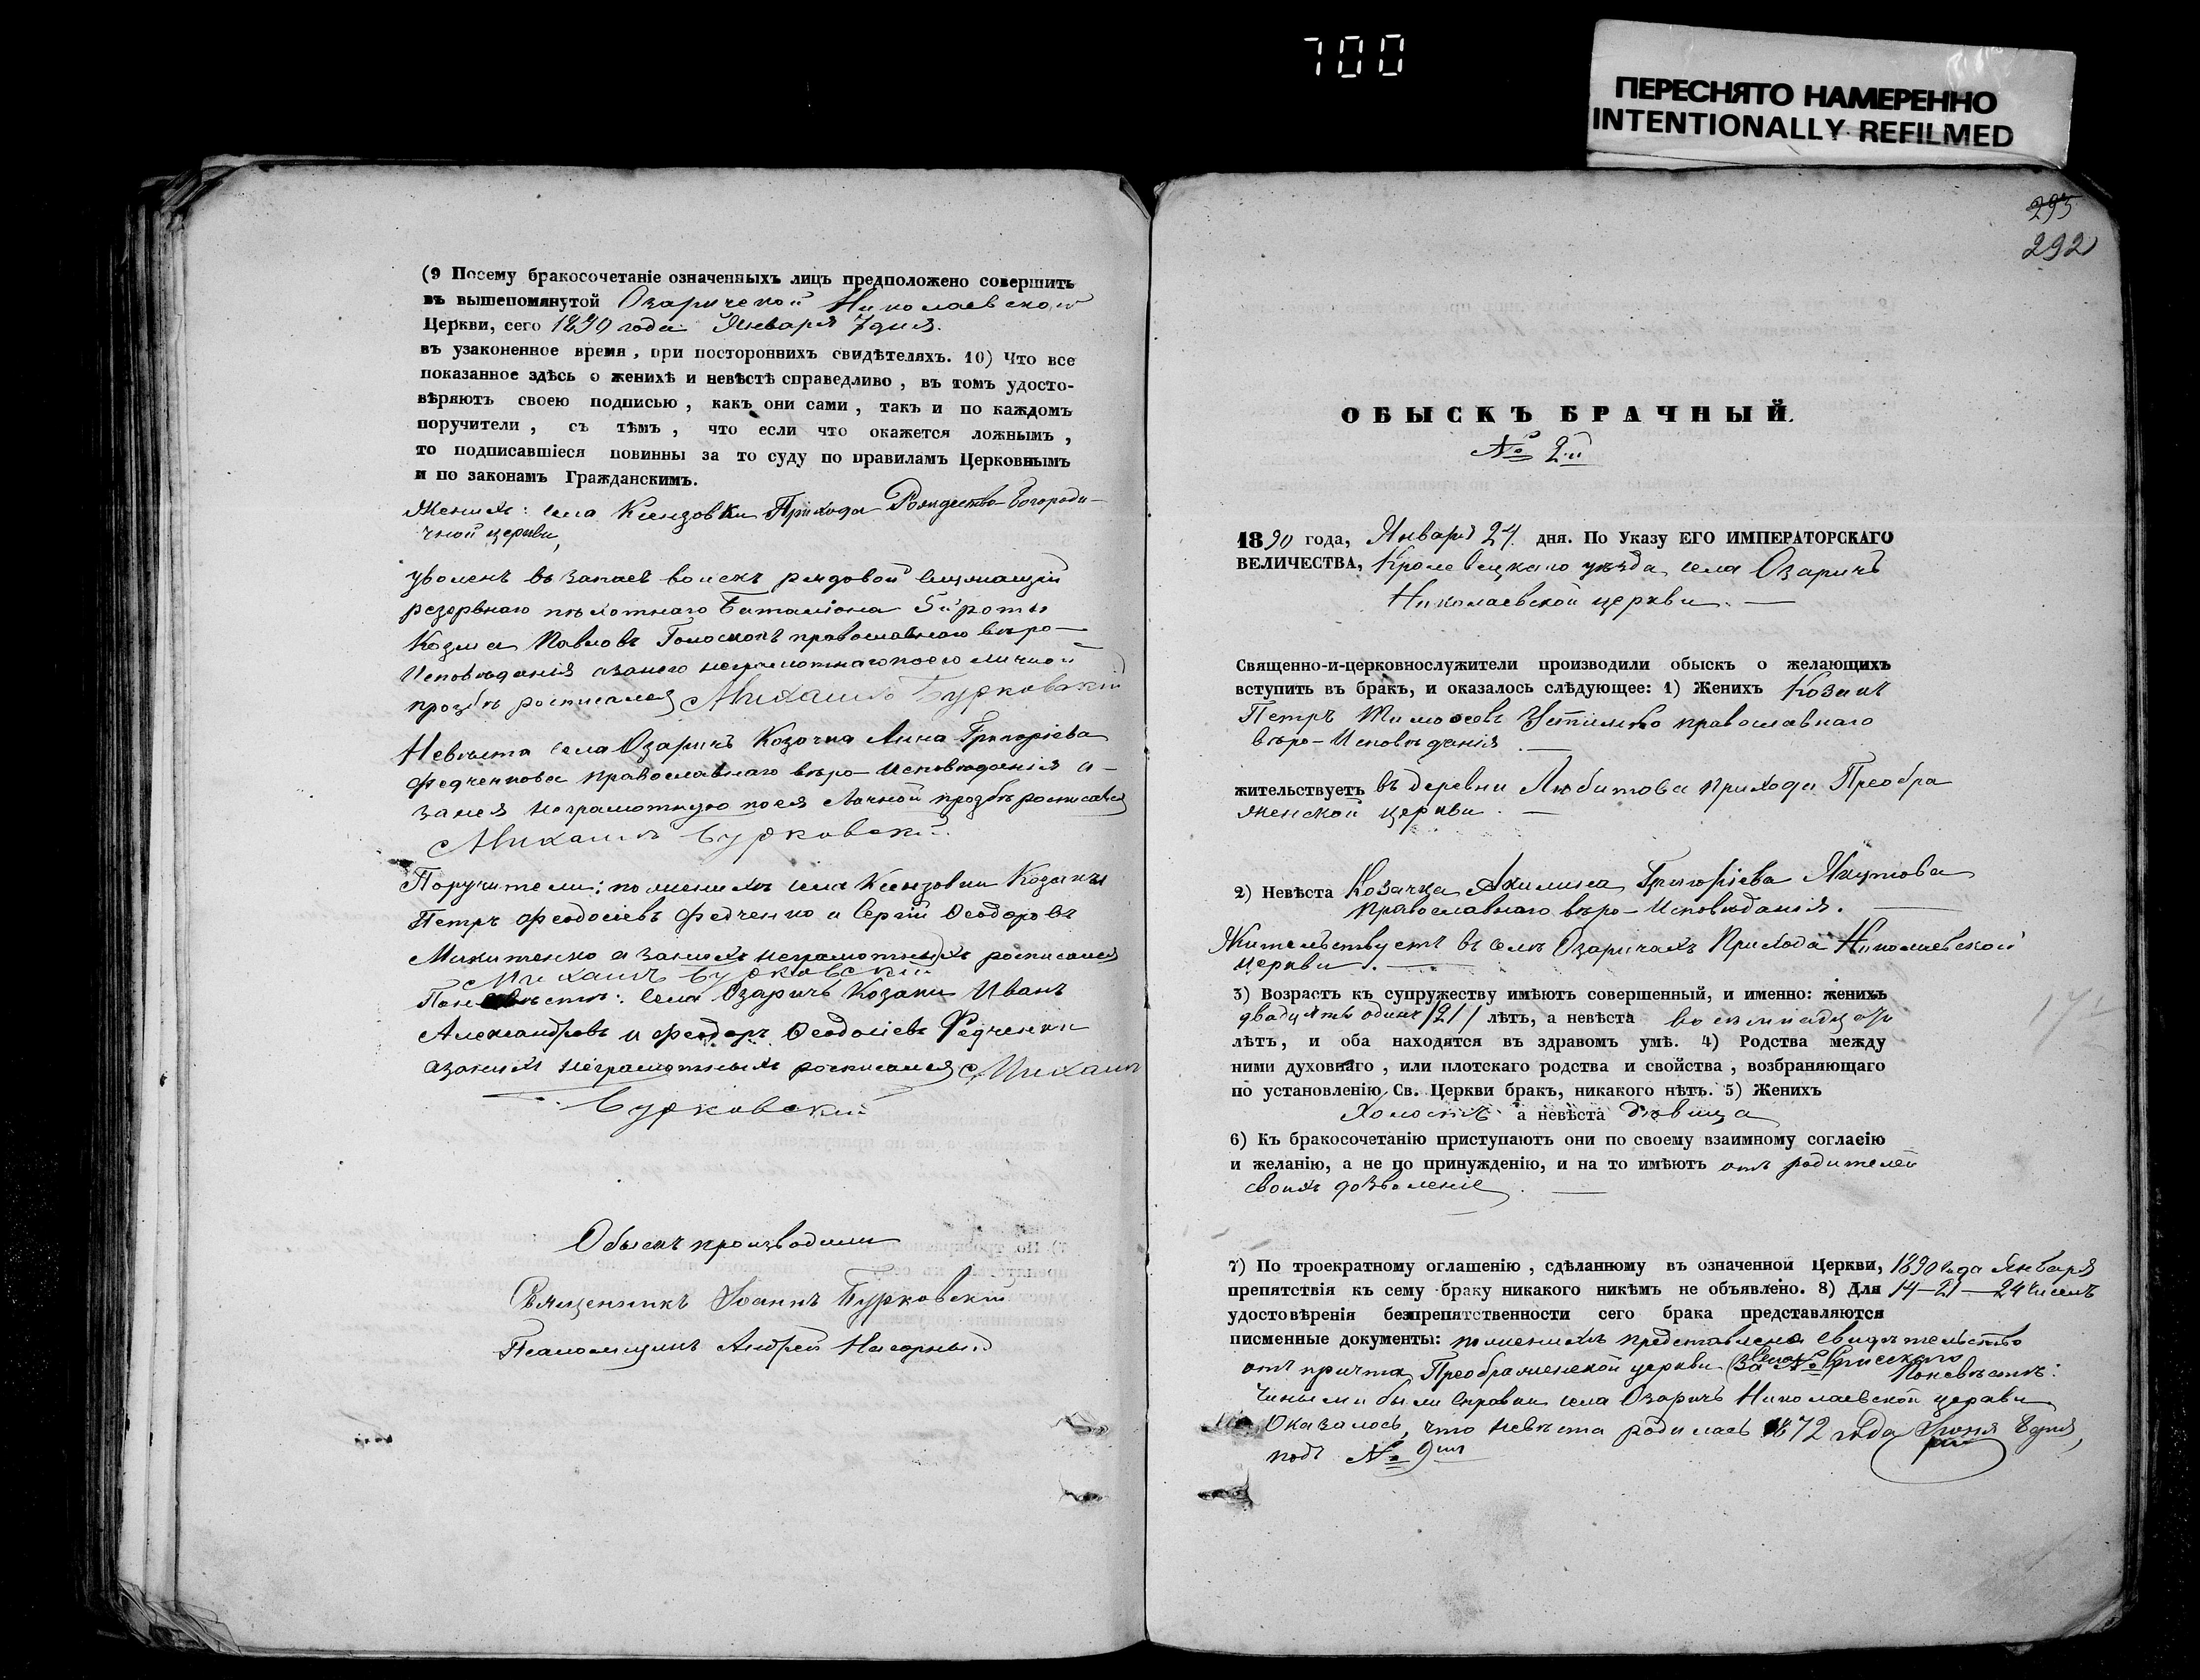 700
ПЕРЕСНЯТО НАМЕРЕННО
INTENTIONALLY REFILMED
(9 Посему бракосочетаніе означенныхъ лицъ предположено совершить
въ вышепомянутой Озаричской Николаевской
Церкви, сего 1890 года Января 7 дня.
въ узаконенное время, при постороннихъ свидѣтеляхъ. 10) Что все
показанное здѣсь о женихѣ и невѣстѣ справедливо, въ томъ удосто-
вѣряютъ своею подписью, какъ они сами, такъ и по каждомъ
поручители, съ тѣмъ, что если что окажется ложнымъ,
то подписавшіеся повинны за то суду по правиламъ Церковнымъ
и по законамъ Гражданскимъ.
Женихъ: села Ксензовки Прихода Рождество-Богороди-
чной церкви,
уволенъ въ запасъ войскъ рядовой
резервнаго пѣхотнаго Баталіона 5й роты
Козма Павловъ православнаго вѣро-
Исповѣданія а за него неграмотнаго по его личной
прозбѣ росписался Михаилъ Бурковскій
Невѣста села Озаричъ Козачка Анна Григоріева
Федченкова православнаго вѣро-Исповѣданія а
за нея неграмотную по ея личной прозбѣ росписался
Михаилъ Бурковскій.
Поручители: по женихѣ села Ксензовки Козаки
Петръ Феодосіевъ Федченко и Сергій Ѳеодоровъ
Микитенко а за нихъ неграмотныхъ росписался
Михаилъ Бурковскій
По невѣстѣ: села Озаричъ Козаки Иванъ
Александровъ и Феодоръ Ѳеодосіевъ Федченки
а за нихъ неграмотныхъ росписался Михаилъ
Бурковскій
Обыскъ производили
Священникъ Іоаннъ Бурковскій
Псаломщикъ Андрей Нагорный
295
292
ОБЫСКЪ БРАЧНЫЙ.
№ 2й
1890 года, Января 24 дня. По Указу ЕГО ИМПЕРАТОРСКАГО
ВЕЛИЧЕСТВА, Кролевецкаго уѣзда села Озаричъ
Николаевской церкви.
Священно-и-церковнослужители производили обыскъ о желающихъ
вступить въ бракъ, и оказалось слѣдующее: 1) Женихъ Козакъ
Петръ Тимоѳеевъ православнаго
вѣро-Исповѣданія
жительствуетъ въ деревни Любитова прихода Преобра
женской церкви.
2) Невѣста Козачка Акилина Григоріева Якутова
православнаго вѣро-Исповѣданія.
Жительствуетъ въ селѣ Озаричахъ Прихода Николаевской
церкви.
3) Возрастъ къ супружеству имѣютъ совершенный, и именно: женихъ
двадцять одинъ /21/ лѣтъ, а невѣста восемнадцать
лѣтъ, и оба находятся въ здравомъ умѣ. 4) Родства между
ними духовнаго, или плотскаго родства и свойства, возбраняющаго
по установленію Св. Церкви бракъ, никакого нѣтъ. 5) Женихъ
Холостъ а невѣста дѣвица
6) Къ бракосочетанію приступаютъ они по своему взаимному согласію
и желанію, а не по принужденію, и на то имѣютъ отъ родителей
своихъ дозволеніе
7) По троекратному оглашенію, сдѣланному въ означенной Церкви, 1890 года Января
препятствія къ сему браку никакого никѣмъ не объявлено. 8) Для 14-21-24 чиселъ
удостовѣренія безпрепятственности сего брака представляются
писменные документы: по женихѣ представлено свидѣтельство
отъ причта Преображенской церкви за № По невѣстѣ:
чинъ ми были справки села Озаричъ Николаевской церкви
Оказалось, что невѣста родилась 1872 года Іюня 8 дня,
подъ № 9мъ